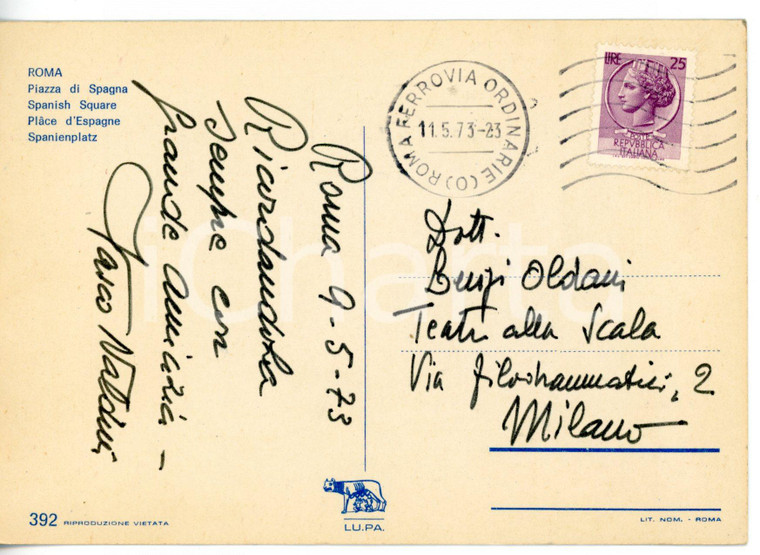 ROMA
Piazza di Spagna
Spanish Square
Plâce d'Espagne
Spanienplatz
Roma 9-5-73
Ricordandola
sempre con
grande amicizia -
ROMA FERROVIA ORDINARIE (O)
11.5.73-23
LIRE 25
POSTE
REPVBBLICA
ITALIANA
Dott.
Oldani
Teatro alla Scala
Via Filodrammatici, 2
Milano
iCharta
392 RIPRODUZIONE VIETATA
LU.PA.
LIT. NOM. - ROMA